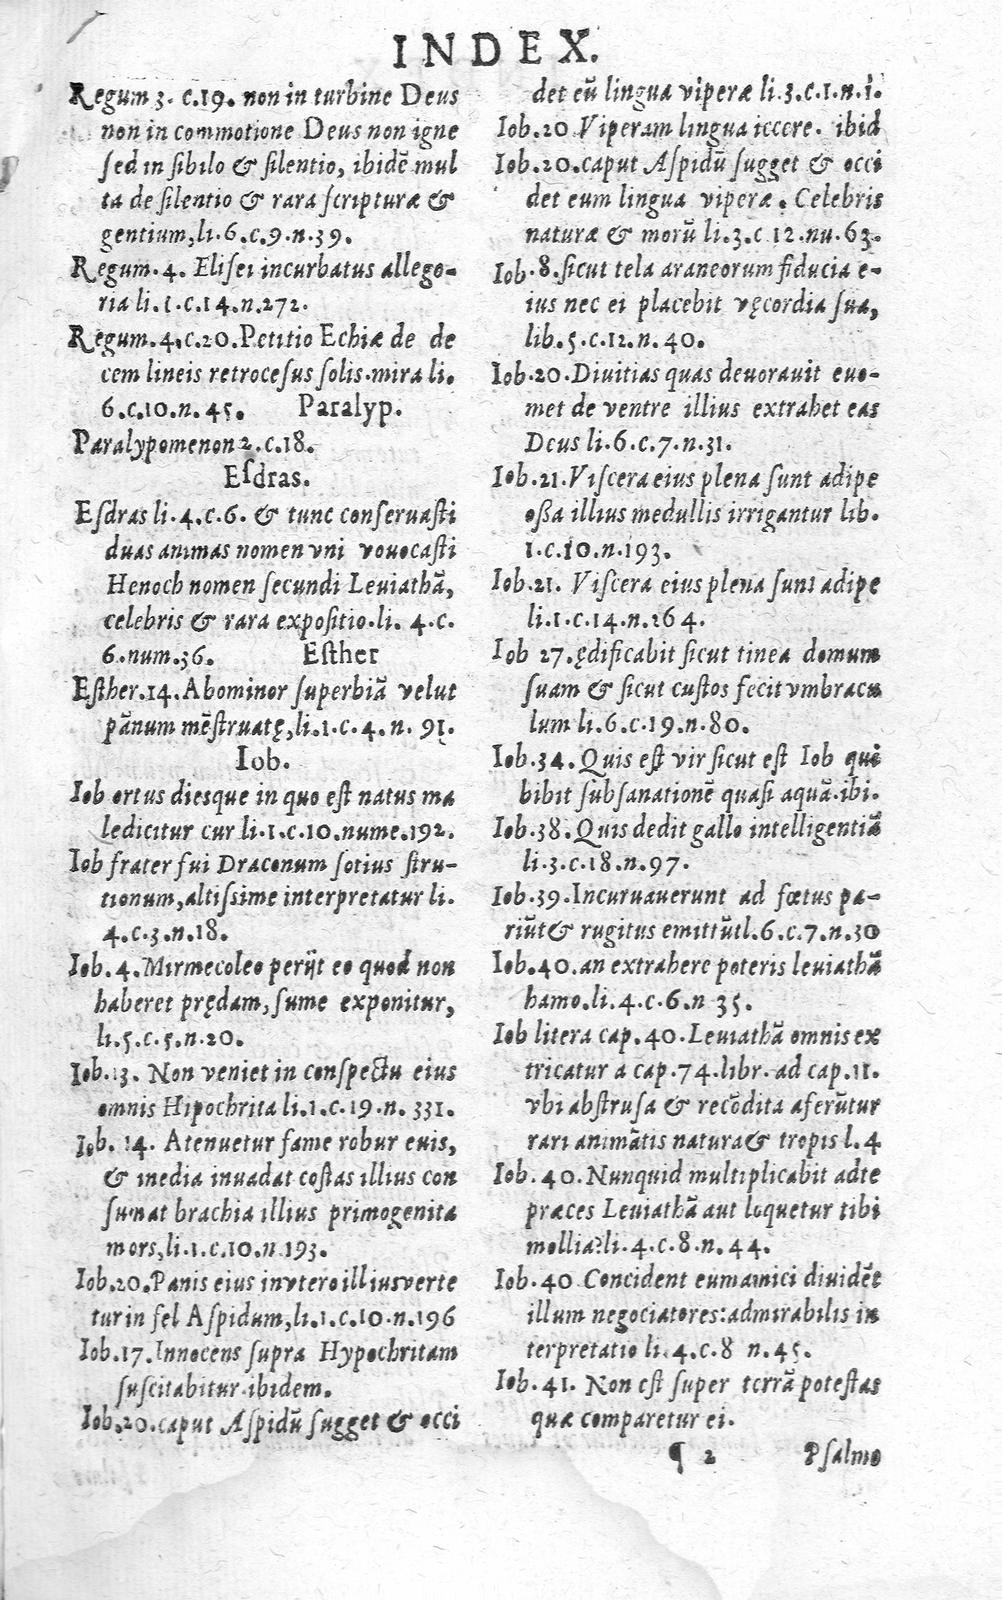 INDEX.
Regum 3. c.19. non in turbine Deus
non in commotione Deus non igne
sed in sibilo & silentio, ibidē mul
ta de silentio & rara scripturæ &
gentium, li.6.c.9.n.39.
Regum.4. Elisei incurbatus allego-
ria li.1.c.14.n.272.
Regum.4.c.20.Petitio Echiæ de de
cem lineis retrocesus solis.mira li.
6.c.10.n.45.
Paralyp.
Paralypomenon 2.c.18.
Esdras.
Esdras li.4.c.6. & tunc conseruasti
duas animas nomen vni vouocasti
Henoch nomen secundi Leuiathā,
celebris & rara expositio.li. 4.c.
6.num.36.
Esther
Esther.14.Abominor superbiā velut
pānum mēstruatę,li.1.c.4.n. 91.
Iob.
Iob ortus diesque in quo est natus ma
ledicitur cur li.1.c.10.nume.192.
Iob frater fui Draconum sotius stru-
tionum,altissime interpretatur li.
4.c.3.n.18.
Iob.4.Mirmecoleo perijt eo quod non
haberet prędam, sume exponitur,
li.5.c.5.n.20.
Iob.13. Non veniet in conspectu eius
omnis Hipochrita li.1.c.19.n.331.
Iob. 14. Atenuetur fame robur euis,
& inedia inuadat costas illius con
sumat brachia illius primogenita
mors,li.1.c.10.n.193.
Iob.20.Panis eius invtero illius verte
tur in fel Aspidum,li.1.c.10.n.196
Iob.17.Innocens supra Hypochritam
suscitabitur.ibidem.
Iob.20.caput Aspidū sugget & occi
det eū lingua viperæ li.3.c.1.n.1.
Iob.20.Viperam lingua iccere. ibid
Iob.20.caput Aspidū sugget & occi
det eum lingua viperæ. Celebris
naturæ & morū li.3.c.12.nu.63.
Iob.8.sicut tela araneorum fiducia e-
ius nec ei placebit vęcordia sua,
lib.5.c.12.n.40.
Iob.20.Diuitias quas deuorauit euo-
met de ventre illius extrahet eas
Deus li.6.c.7.n.31.
Iob.21.Viscera eius plena sunt adipe
oßa illius medullis irrigantur lib.
1.c.10.n.193.
Iob.21. Viscera eius plena sunt adipe
li.1.c.14.n.264.
Iob 27.ędificabit sicut tinea domum
suam & sicut custos fecit vmbracu
lum li.6.c.19.n.80.
Iob.34.Quis est vir sicut est Iob qui
bibit subsanationē quasi aquā.ibi.
Iob.38.Quis dedit gallo intelligentiā
li.3.c.18.n.97.
Iob.39.Incuruauerunt ad fœtus pa-
riūt & rugitus emittūt l.6.c.7.n.30
Iob.40.an extrahere poteris leuiathā
hamo.li.4.c.6.n 35.
Iob litera cap.40.Leuiathā omnis ex
tricatur a cap.74.libr.ad cap.11.
vbi abstrusa & recōdita aferūtur
rari animātis natura & tropis l.4
Iob.40.Nunquid multiplicabit adte
præces Leuiathā aut loquetur tibi
mollia?li.4.c.8.n.44.
Iob.40 Concident eum amici diuidēt
illum negociatores:admirabilis in
terpretatio li.4.c.8 n.45.
Iob.41. Non est super terrā potestas
quæ comparetur ei.
¶ 2 Psalmo